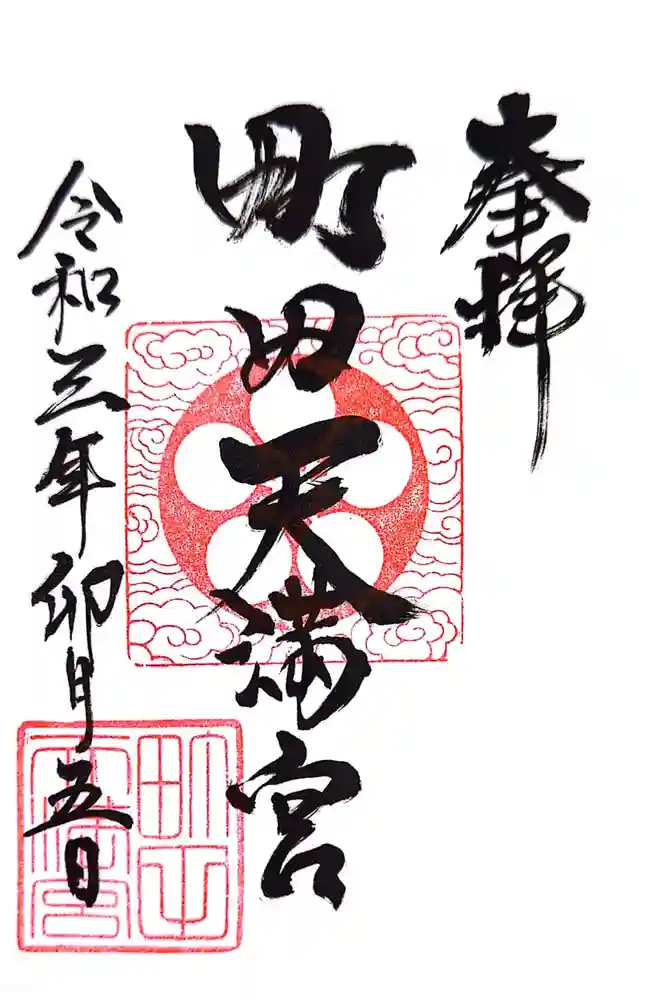 奉拝
町田天満宮
令和三年卯月五日
町田天満宮